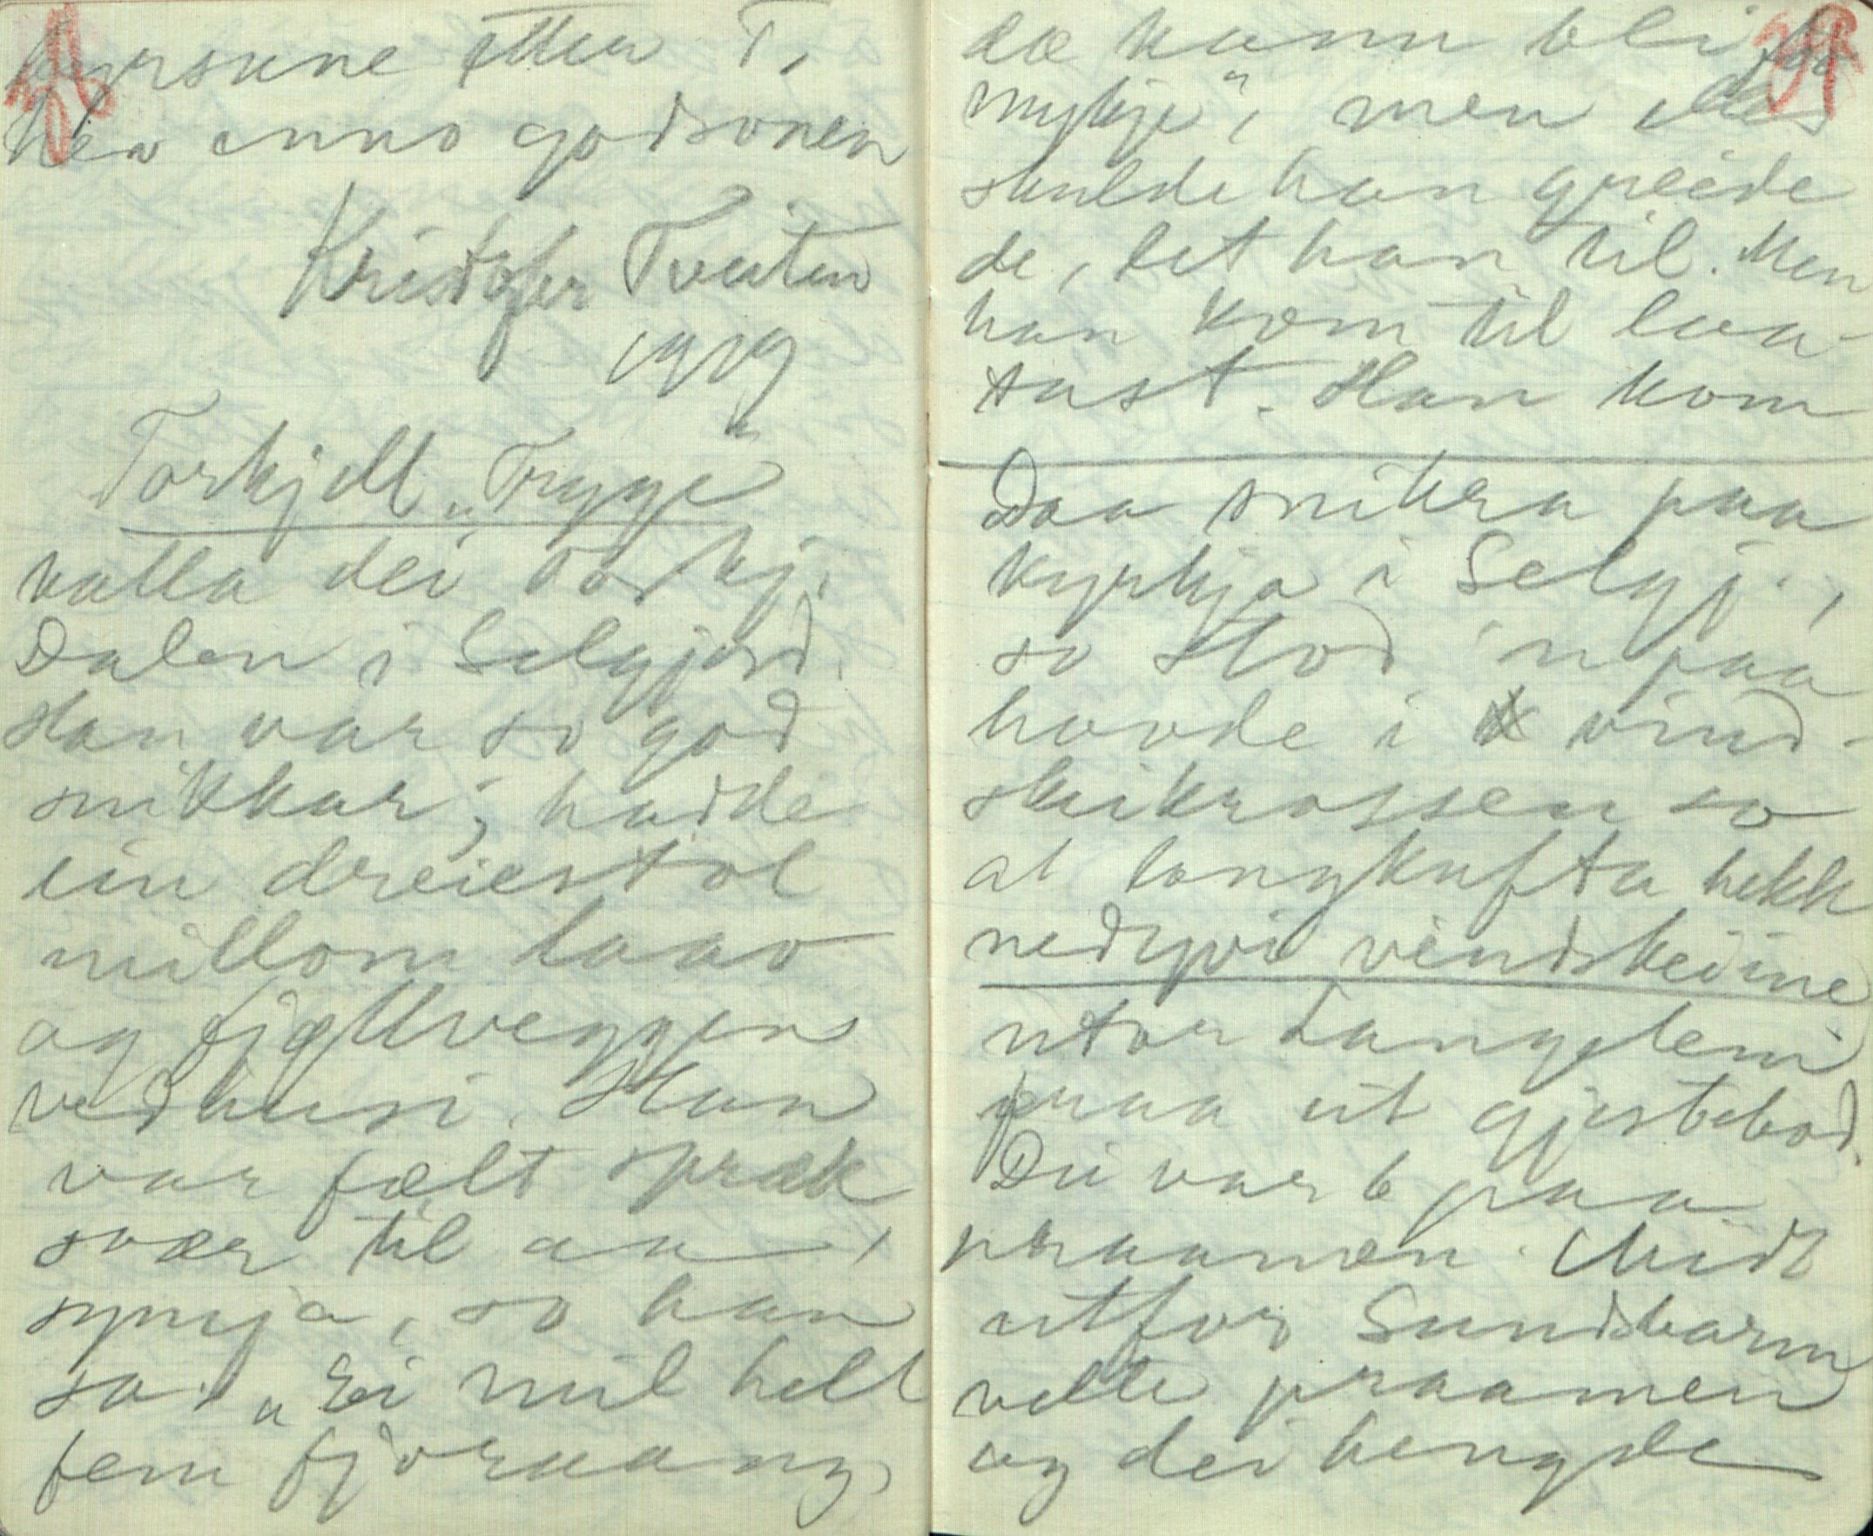 etter T.
hev enno godsonen
Kristofer Tveiten
1919
Torkjell „Trygge"
kalla dei Torkj.
Dalen i Selgjord.
Han var so god
snikkar; hadde
ein dreiestol
millom laav
og fjøllveggen
ved husi. Han
var fælt spræk
svær til aa
symja, so han
sa: „Ei mil hell
fem fjoraang,
dæ kann bli for
mykje", men
skulde han greide
de, let han til. Men
han kom til laa-
tast. Han kom
Daa snikra paa
kyrkja i Selgj.,
so stod 'n paa
hovde i vind-
skikrossen so
at langkufta hekk
nedyvi vindskeiine
utor Langelem
praa eit gjestebod.
Dei var 6 paa
praamen. Midt
utfor Sundbarm
velte praamen
og dei hengde